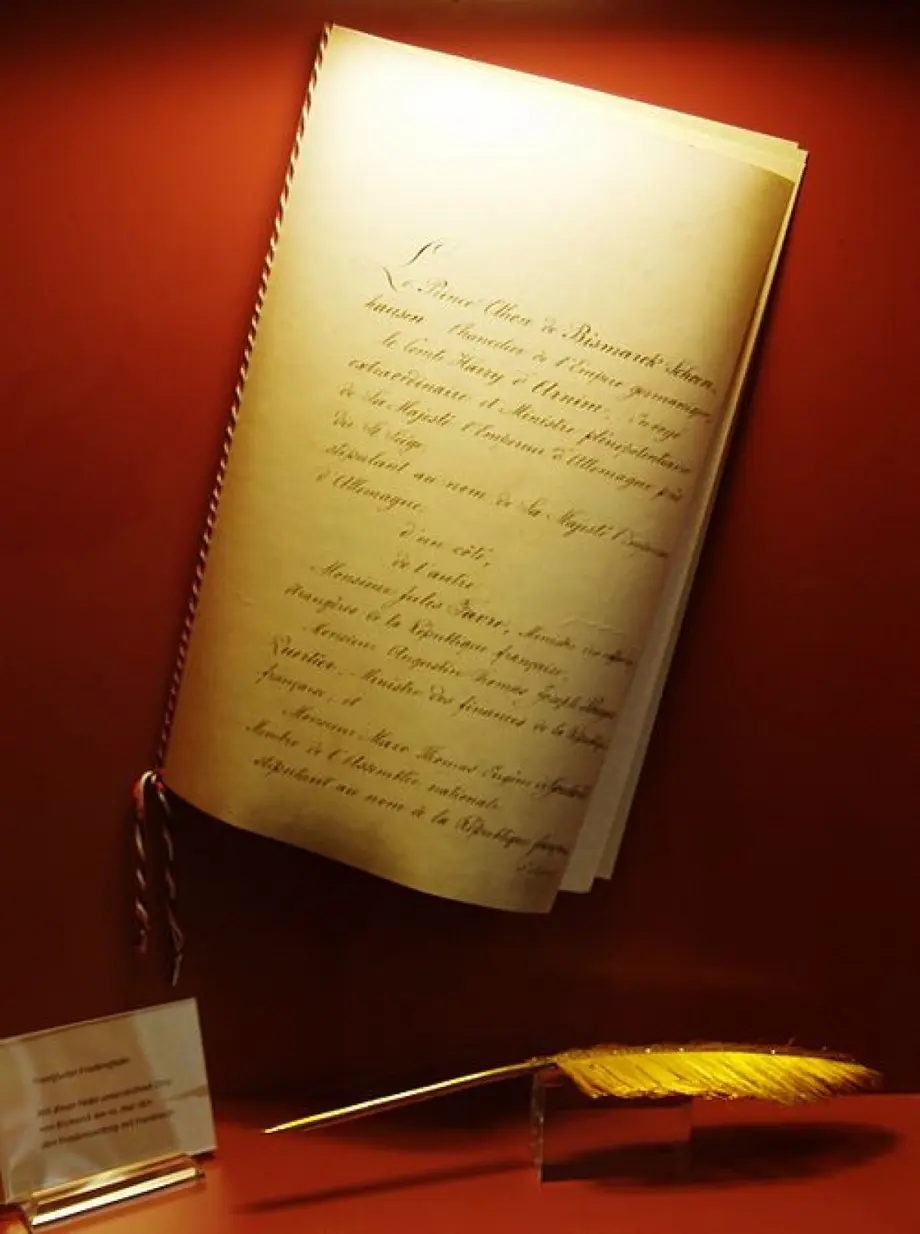 Le Prince Othon de Bismarck-Schoen-
hausen Chancelier de l'Empire germanique,
le Comte Harry d'Arnim, Envoyé
extraordinaire et Ministre plénipotentiaire
de Sa Majesté l'Empereur d'Allemagne près
du St. Siège,
stipulant au nom de Sa Majesté l'Empereur
d'Allemagne,
d'un côté,
de l'autre
Monsieur Jules Favre, Ministre des affaires
étrangères de la République française,
Monsieur Augustin Thomas Joseph Pouyer-
Quertier, Ministre des finances de la République
française, et
Monsieur Marc Thomas Eugène de Goulard
Membre de l'Assemblée nationale
stipulant au nom de la République française
Frankfurter Friedensvertrag
Mit dieser Feder unterzeichnete Otto
von Bismarck am 10. Mai 1871
den Friedensvertrag mit Frankreich